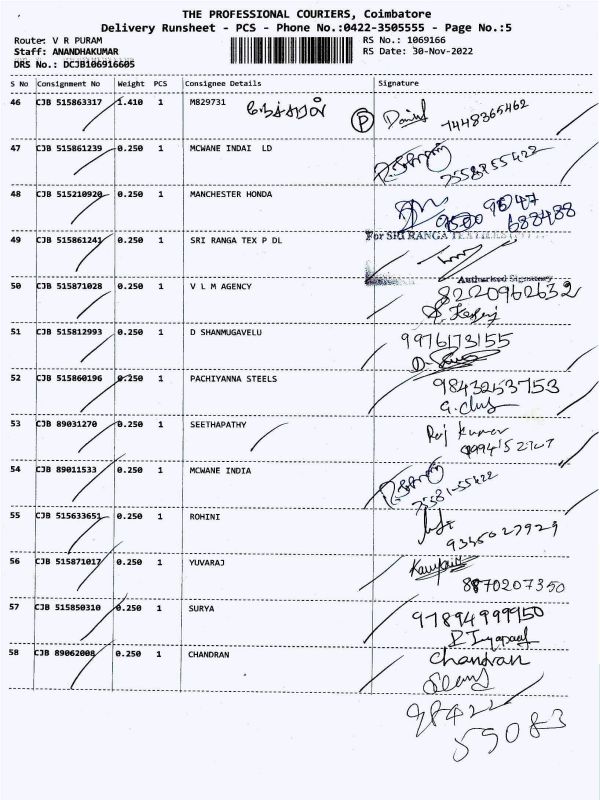 THE PROFESSIONAL COURIERS, Coimbatore
Delivery Runsheet - PCS - Phone No.:0422-3505555 - Page No.:5
Route: V R PURAM RS No.: 1069166
Staff: ANANDHAKUMAR RS Date: 30-Nov-2022
DRS No.: DCJB106916605
S No Consignment No Weight PCS Consignee Details Signature
46 CJB 515863317 1.410 1 M829731 P 7448365462
47 CJB 515861239 0.250 1 MCWANE INDAI LD 7558155422
48 CJB 515210920 0.250 1 MANCHESTER HONDA
688488
49 CJB 515861241 0.250 1 SRI RANGA TEX P DL For SRI RANGA
Authorised Signatory
50 CJB 515871028 0.250 1 V L M AGENCY 8220962632
51 CJB 515812993 0.250 1 D SHANMUGAVELU 9976173155
52 CJB 515860196 0.250 1 PACHIYANNA STEELS 9843253753
53 CJB 89031270 0.250 1 SEETHAPATHY Raj Kumar
54 CJB 89011533 0.250 1 MCWANE INDIA 75581-55422
55 CJB 515633651 0.250 1 ROHINI
9345027929
56 CJB 515871017 0.250 1 YUVARAJ
8870207350
57 CJB 515850310 0.250 1 SURYA 9789499950
58 CJB 89062008 0.250 1 CHANDRAN Chandran
98422
59083